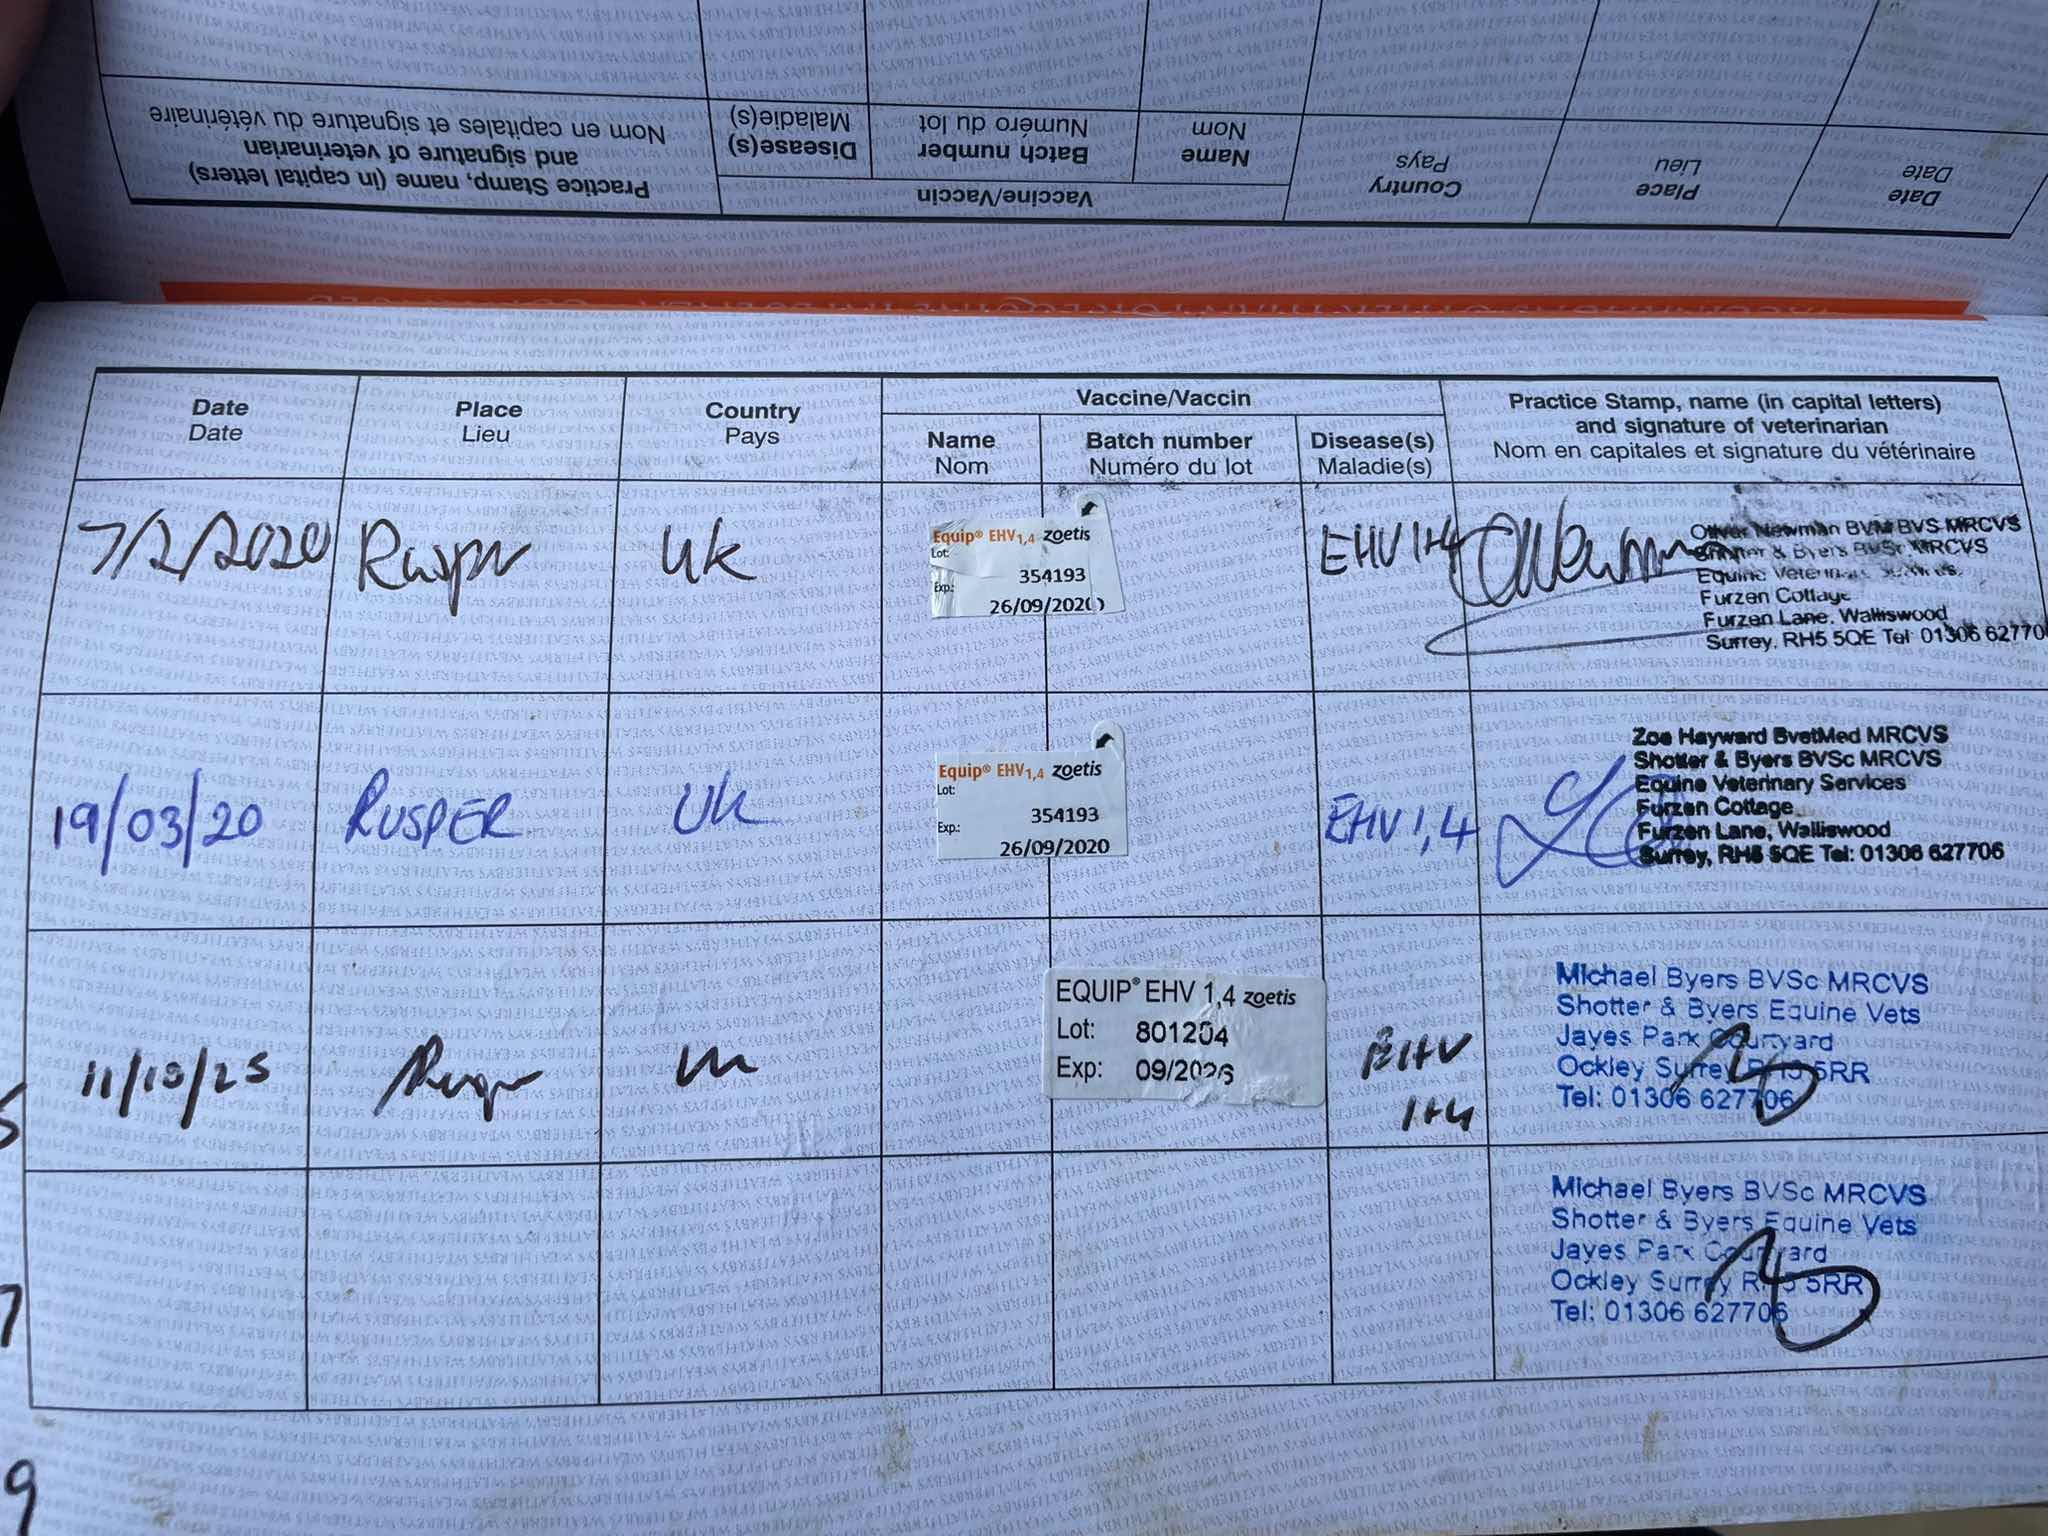 Practice Stamp, name (in capital letters)
and signature of veterinarian
Nom en capitales et signature du vétérinaire
Vaccine/Vaccin
Disease(s)
Maladie(s)
Batch number
Numéro du lot
Name
Nom
Country
Pays
Place
Lieu
Date
Date
Date
Date
Place
Lieu
Country
Pays
Vaccine/Vaccin
Name
Nom
Batch number
Numéro du lot
Disease(s)
Maladie(s)
Practice Stamp, name (in capital letters)
and signature of veterinarian
Nom en capitales et signature du vétérinaire
7/2/2020
Rusper
UK
Equip® EHV1,4 zoetis
Lot:
354193
Exp.:
26/09/2020
EHV 1+4
Oliver Newman BVM BVS MRCVS
Shotter & Byers BVSc MRCVS
Equine Veterinary Services
Furzen Cottage
Furzen Lane, Walliswood
Surrey, RH5 5QE Tel: 01306 62770
19/03/20
RUSPER
UK
Equip® EHV1,4 zoetis
Lot:
354193
Exp.:
26/09/2020
EHV 1,4
Zoe Hayward BvetMed MRCVS
Shotter & Byers BVSc MRCVS
Equine Veterinary Services
Furzen Cottage
Furzen Lane, Walliswood
Surrey, RH5 5QE Tel: 01306 627706
11/10/25
Rusper
UK
EQUIP® EHV 1,4 zoetis
Lot: 801204
Exp: 09/2026
EHV
1+4
Michael Byers BVSc MRCVS
Shotter & Byers Equine Vets
Jayes Park Courtyard
Ockley Surrey RH5 5RR
Tel: 01306 627706
Michael Byers BVSc MRCVS
Shotter & Byers Equine Vets
Jayes Park Courtyard
Ockley Surrey RH5 5RR
Tel: 01306 627706
7
9